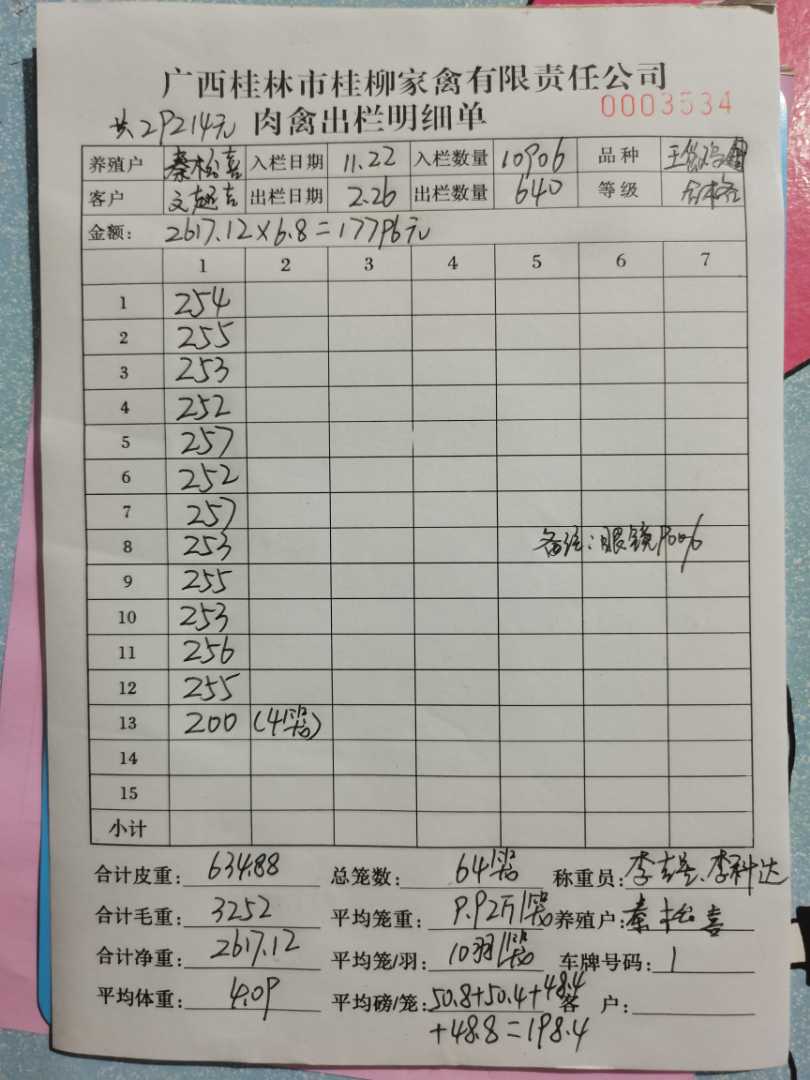 广西桂林市桂柳家禽有限责任公司
0003534
共29214元 肉禽出栏明细单
养殖户 秦松喜 入栏日期 11.22 入栏数量 10906 品种
客户 出栏日期 2.26 出栏数量 640 等级 合格
金额: 2617.12×6.8=17796元
1 2 3 4 5 6 7
1 254
2 255
3 253
4 252
5 257
6 252
7 257
8 253 备注:眼镜
9 255
10 253
11 256
12 255
13 200 (4笼)
14
15
小计
合计皮重: 634.88 总笼数: 64笼 称重员: 李科达
合计毛重: 3252 平均笼重: 9.92斤/笼 养殖户: 秦松喜
合计净重: 2617.12 平均笼/羽: 10羽/笼 车牌号码: 1
平均体重: 4.09 平均磅/笼: 50.8+50.4+48.4 客 户:
+48.8=198.4